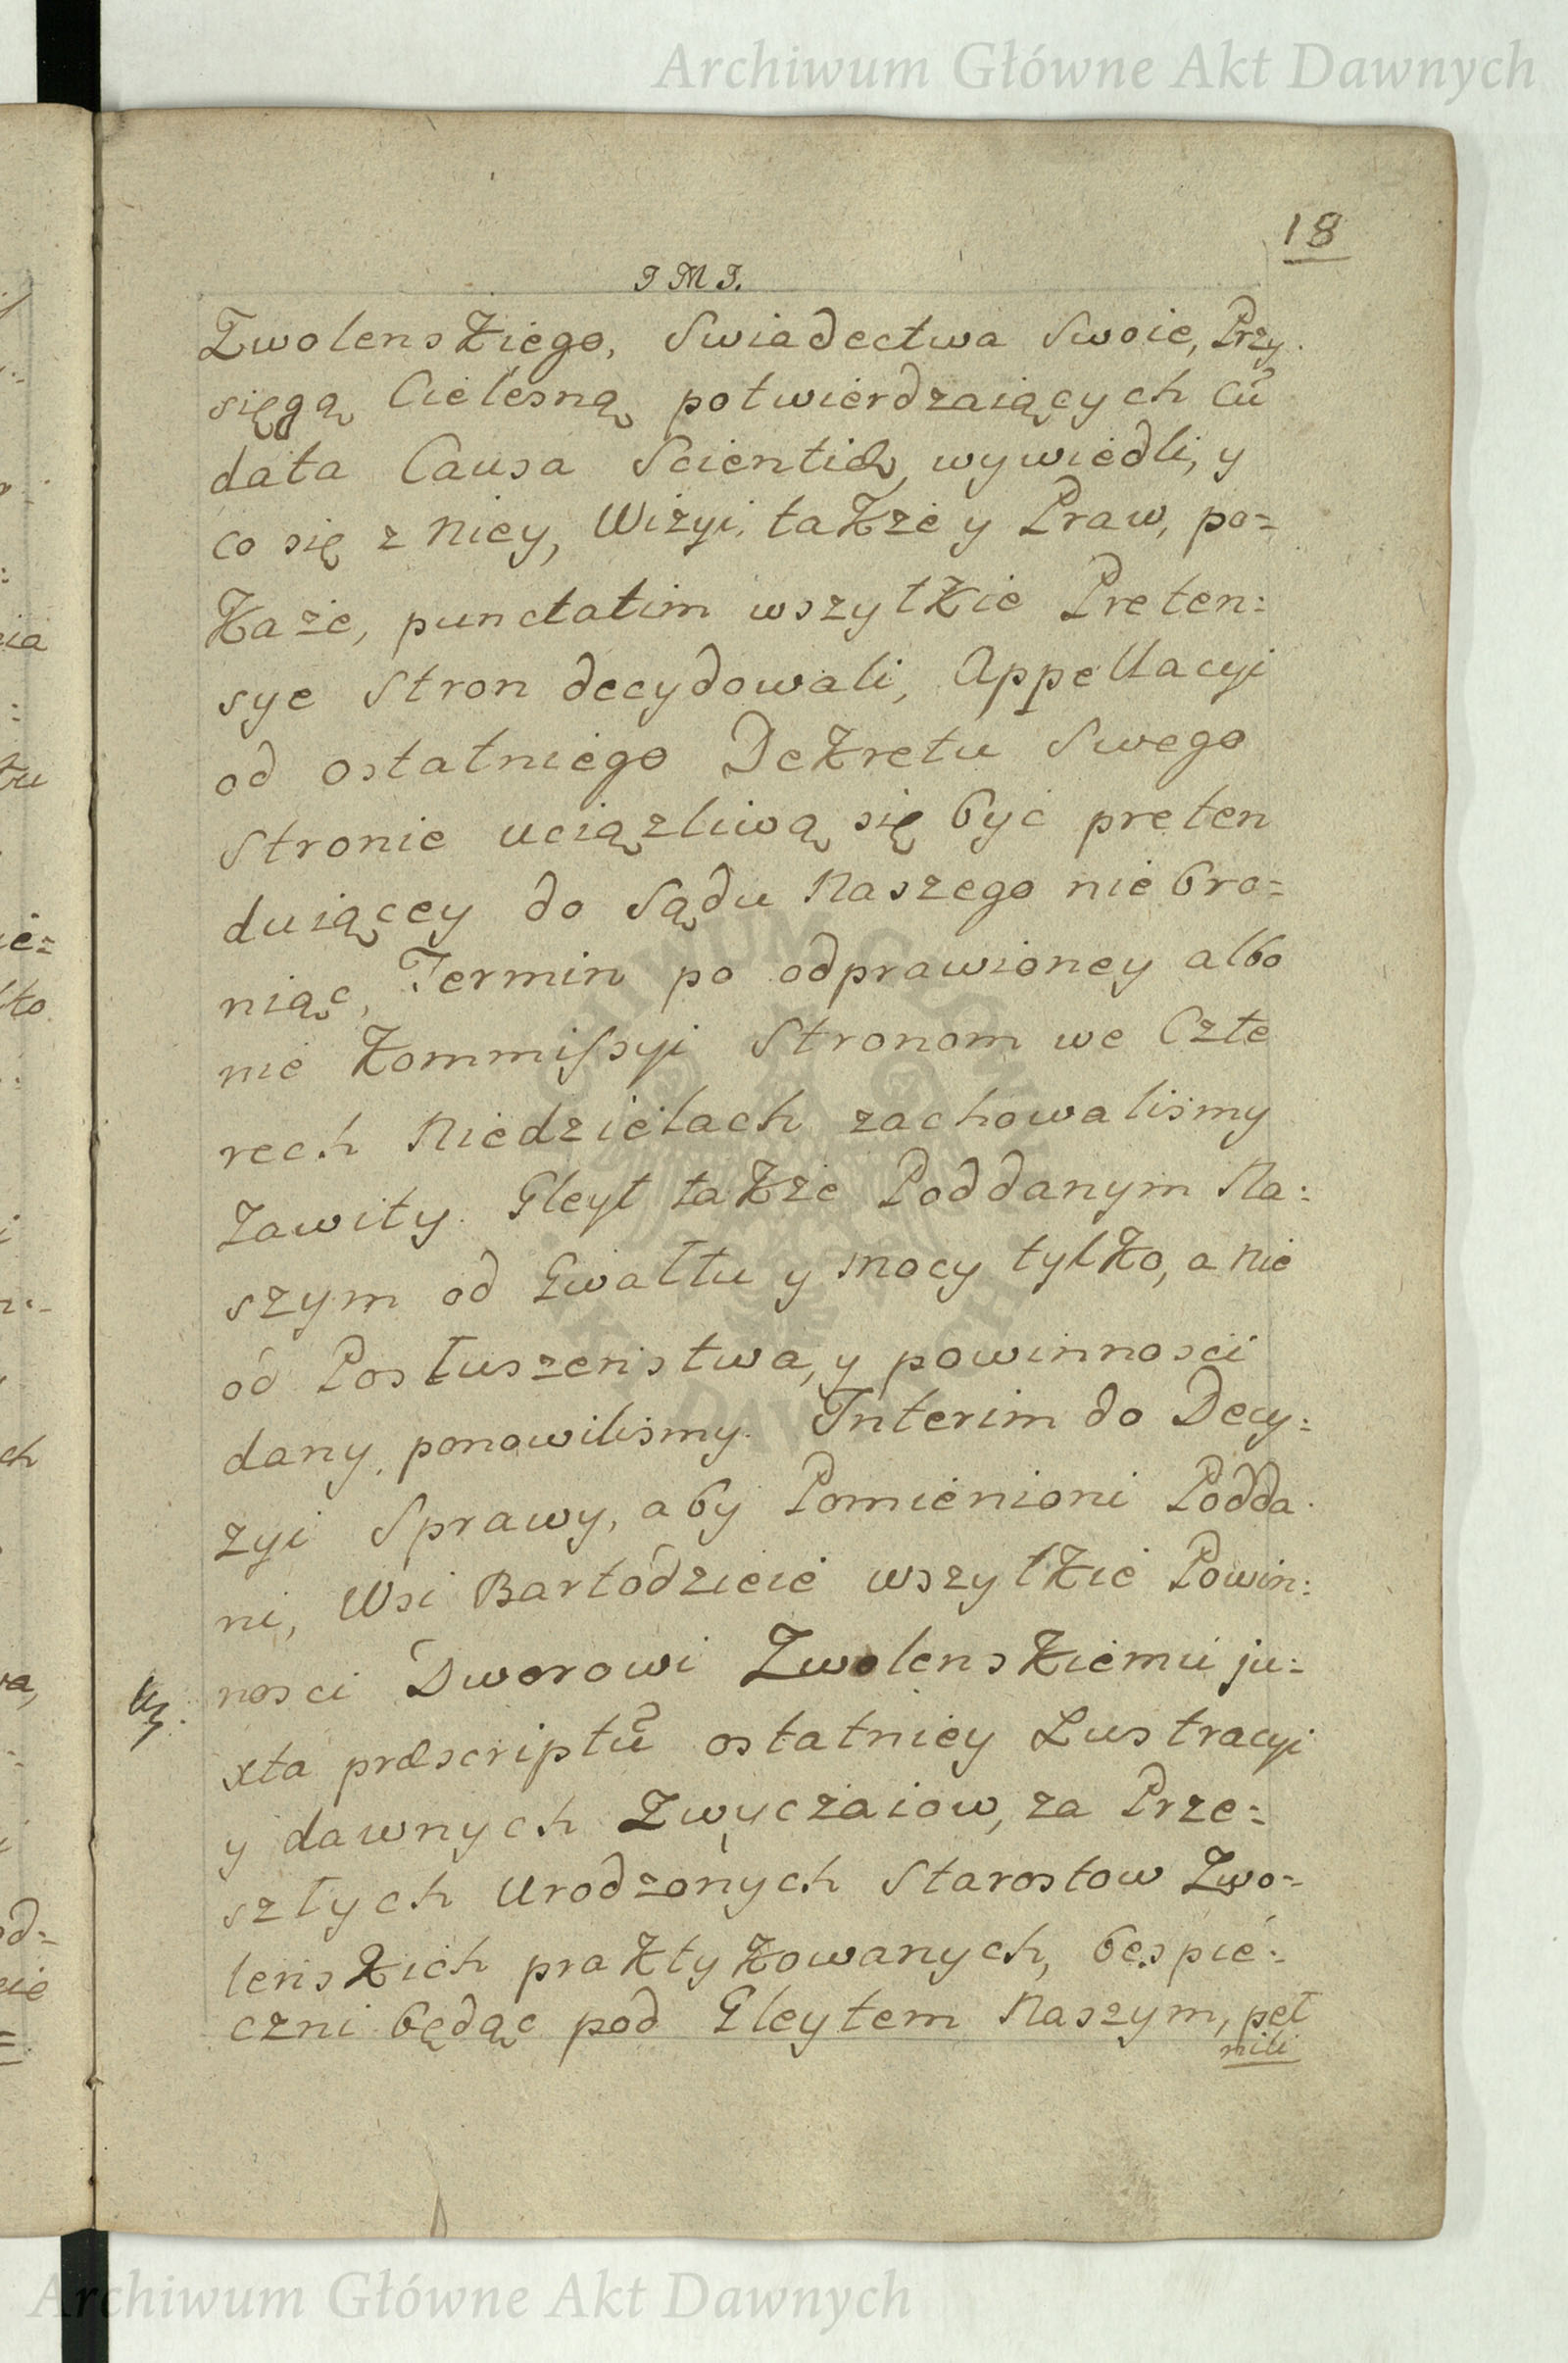 Archiwum Główne Akt Dawnych
18
J M J.
Zwolenskiego, Swiadectwa Swoie, Przy.
sięgą Cielesną potwierdzaiących cũ
data Causa Scientiæ, wywiedli, y
co się z niey, Wizyi, takze y Praw, po=
każe, punctatim wszytkie Preten:
sye Stron decydowali, Appellacyi
od ostatniego Dekretu Swego
Stronie uciązliwą się być preten
duiącey do Sądu Naszego nie bro=
niąc, Termin po odprawioney albo
nie Kommissyi Stronom we Czte
rech Niedzielach zachowalismy
Zawity. Gleyt także Poddanym Na:
szym od Gwałtu y mocy tylko, a nie
od Posłuszenstwa, y powinnosci
dany, ponowilismy. Interim do Decy:
zyi Sprawy, aby Pomienioni Podda.
ni, Wsi Bartodzieie wszytkie Powin:
nosci Dworowi Zwolenskiemu ju:
xta præscriptũ ostatniey Lustracyi
y dawnych Zwyczaiow, za Prze=
szłych Urodzonych Starostow Zwo=
lenskich praktykowanych, bespie:
czni będąc pod Gleytem Naszym, peł
nili
Archiwum Główne Akt Dawnych